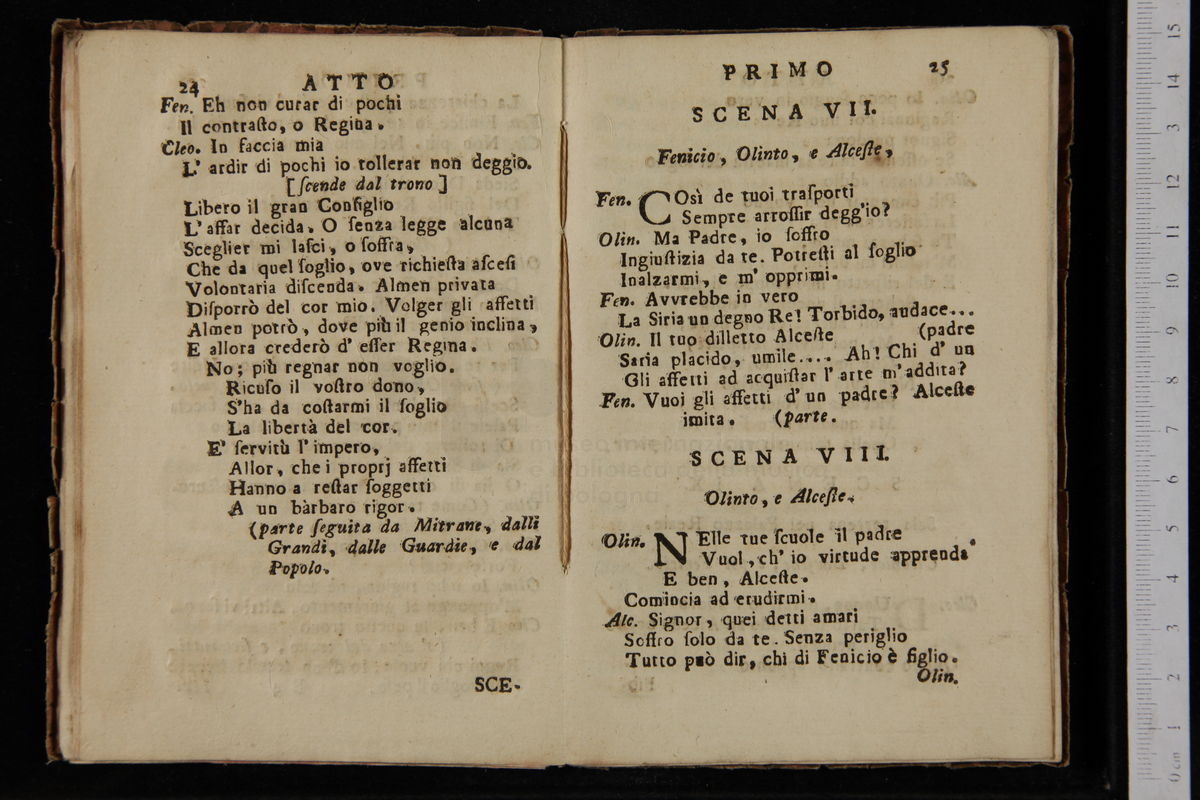 24 ATTO
Fen. Eh non curar di pochi
Il contraſto, o Regina.
Cleo. In faccia mia
L' ardir di pochi io tollerar non deggio.
[ſcende dal trono]
Libero il gran Conſiglio
L' affar decida. O ſenza legge alcuna
Sceglier mi laſci, o ſoffra,
Che da quel ſoglio, ove richieſta aſceſi
Volontaria diſcenda. Almen privata
Diſporrò del cor mio. Volger gli affetti
Almen potrò, dove più il genio inclina,
E allora crederò d' eſſer Regina.
No; più regnar non voglio.
Ricuſo il voſtro dono,
S'ha da coſtarmi il ſoglio
La libertà del cor.
E' ſervitù l' impero,
Allor, che i proprj affetti
Hanno a reſtar ſoggetti
A un bàrbaro rigor.
(parte ſeguita da Mitrane, dalli
Grandi, dalle Guardie, e dal
Popolo.
SCE-
PRIMO 25
SCENA VII.
Fenicio, Olinto, e Alceſte,
Fen. COsì de tuoi traſporti
Sempre arroſſir degg'io?
Olin. Ma Padre, io ſoffro
Ingiuſtizia da te. Potreſti al ſoglio
Inalzarmi, e m' opprimi.
Fen. Avvrebbe in vero
La Siria un degno Re! Torbido, audace...
Olin. Il tuo dilletto Alceſte (padre
Saria placido, umile.... Ah! Chi d' un
Gli affetti ad acquiſtar l' arte m' addita?
Fen. Vuoi gli affetti d' un padre? Alceſte
imita. (parte.
SCENA VIII.
Olinto, e Alceſte.
Olin. NElle tue ſcuole il padre
Vuol, ch' io virtude apprenda.
E ben, Alceſte.
Comincia ad erudirmi.
Alc. Signor, quei detti amari
Soffro ſolo da te. Senza periglio
Tutto può dir, chi di Fenicio è figlio.
Olin.